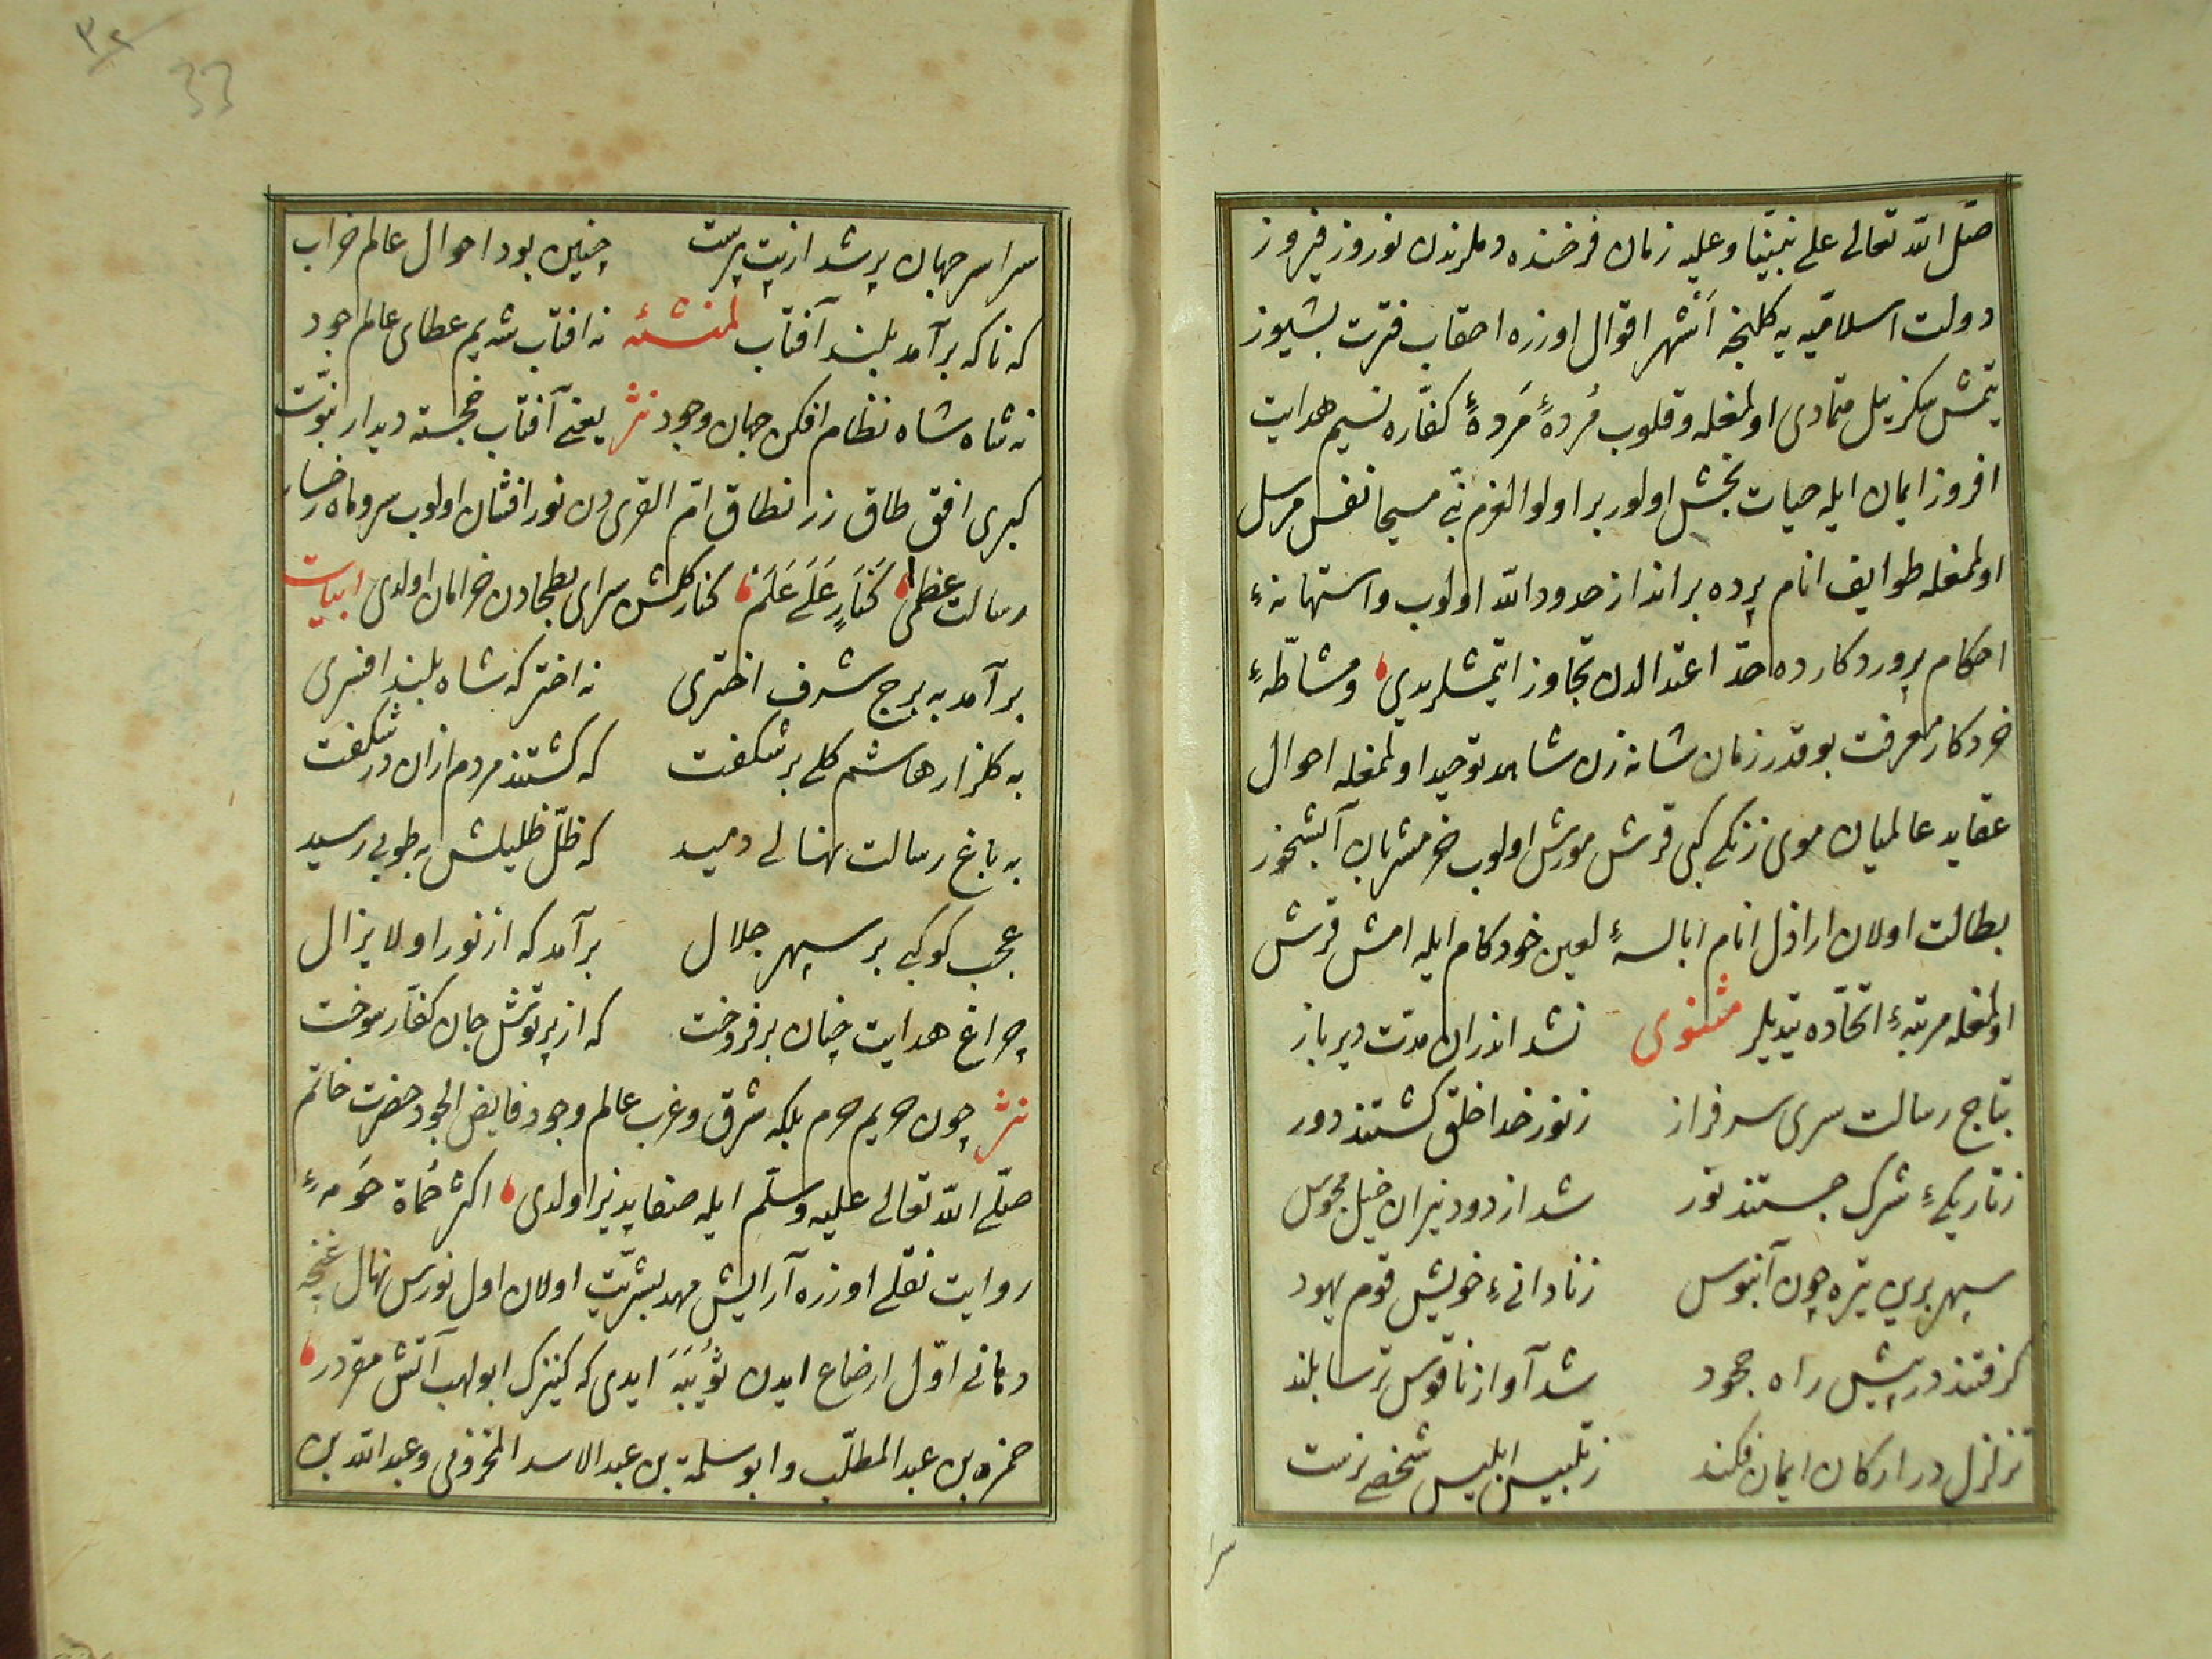 صلى الله تعالى على نبينا وعليه زمان فرخنده دملرندن نوروز فيروز
دولت اسلاميه يه كلنجه أشهر اقوال اوزره احقاب فترت بشيوز
يتمش سكز ييل متمادى اولمغله وقلوب مُردهٔ مَردهٔ كفّاره نسيم هدايت
افروز ايمان ايله حيات بخش اولور بر اولو العزم نبى مسيحا نفس مرسل
اولمغله طوايف انام پرده بر انداز حدود الله اولوب واستهانهٔ
احكام پروردكارده حدّ اعتدالدن تجاوز ايتمشلريدى ومشاطهٔ
خردكار معرفت بو قدر زمان شانه زن شاهد توحيد اولمغله احوال
عقايد عالميان موى زنكى كبى قرش مورش اولوب خر مشربان آبشخور
بطالت اولان اراذل انام ابالسهٔ لعين خودكام ايله امش قرش
اولمغله مرتبهٔ اتحاده يتديلر مثنوى نشد اندران مدت دير باز
بتاج رسالت سرى سرفراز زنور خدا خلق كشتند دور
زتاريكىٔ شرك جستند نور شد از دود نيران خيل مجوس
سپهر برين تيره چون آبنوس زنادانىٔ خويش قوم يهود
كرفتند در پيش راه جحود شد آواز ناقوس ترسا بلند
تزلزل در اركان ايمان فكند زتلبيس ابليس شخصى نرست
سراسر جهان پر شد از بت پرست چنين بود احوال عالم خراب
كه ناكه برآمد بلند آفتاب لمنشئه نه افتاب شه يم عطاى عالم جود
نه شاه شاه نظام افكن جهان وجود نثر يعنى آفتاب خجسته ديدار نبوّت
كبرى افق طاق زر نطاق امّ القرى دن نور افشان اولوب سرو ماه رخسار
رسالت عظمى كَنَارٍ عَلَى عَلَم كنار كلشن سراى بطحادن خرامان اولدى ابيات
برآمد به برج شرف اخترى نه اختر كه شاه بلند افسرى
به كلزار هاشم كلى بر شكفت كه كشتند مردم ازان در شكفت
به باغ رسالت نهالى دميد كه ظلّ ظليلش به طوبى رسيد
عجب كوكبى بر سپهر جلال برآمد كه از نور او لا يزال
چراغ هدايت چنان بر فروخت كه از پرتوش جان كفّار سوخت
نثر چون حريم حرم بلكه شرق وغرب عالم وجود فايض الجود حضرت خاتم
صلّى الله تعالى عليه وسلّم ايله صفا پذير اولدى اكثر حُماة حَومهٔ
روايت نقلى اوزره آرايش مهد بشريّت اولان اول نورس نهال غنچه
دهانى اوّل ارضاع ايدن ثُوَيْبَه ايدى كه كنيزك ابو لهب آتش مقردر
حمزه بن عبد المطلّب وابو سلمة بن عبد الاسد المخزومى وعبد الله بن
٣٢
33